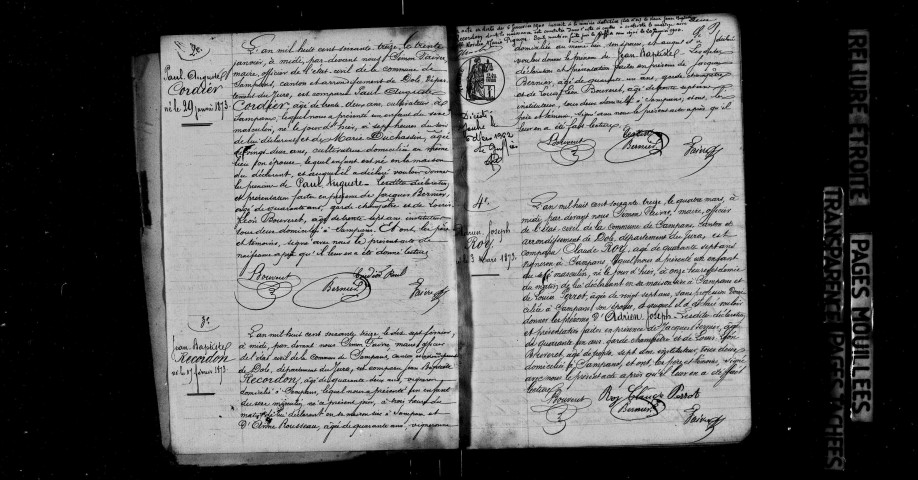 2e.
Paul Auguste
Cordier
né le 29 janvier 1873.
L'an mil huit cent soixante treize, le trente
janvier, à midi, par devant nous Simon Faivre
maire, officier de l'état civil de la commune de
Sampans, canton et arrondissement de Dole, dépar-
tement du Jura, est comparu Paul Auguste
Cordier, âgé de trente deux ans, cultivateur à
Sampans, lequel nous a présenté un enfant du sexe
masculin, né le jour d'hier, à sept heures du soir
de lui déclarant et de Marie Duchassin, âgée
de vingt deux ans, cultivateur domiciliée au même
lieu son épouse, lequel enfant est né en la maison
du déclarant, et auquel il a déclaré vouloir donner
le prénom de Paul Auguste. Lesdites déclaration
et présentation faites en présence de Jacques Bernier,
âgé de quarante ans, garde champêtre et de Louis
Léon Bouvret, âgé de trente sept ans instituteur
tous deux domiciliés à Sampans. Et ont les père
et témoins, signé avec nous le présent acte de
naissance après qu'il leur en a été donné lecture.
Bouvret
Cordier Paul
Bernier
Faivre
3e.
Jean Baptiste
Recordon
né le 17 février 1873.
L'an mil huit cent soixante treize, le dix sept février,
à midi, par devant nous Simon Faivre maire officier
de l'état civil de la Commune de Sampans, canton et arrondissement
de Dole, département du Jura, est comparu Jean Baptiste
Recordon, âgé de quarante deux ans, vigneron
domicilié à Sampans, lequel nous a présenté un enfant
du sexe masculin, né à trois heures du
matin de lui déclarant en sa maison sise à Sampans et
D'Anne Rousseau, âgée de quarante ans, vigneronne
domiciliée au même lieu son épouse, et auquel il a déclaré
vouloir donner le prénom de Jean Baptiste. Lesdites
déclaration et présentation faites en présence de Jacques
Bernier, âgé de quarante ans, garde champêtre
et de Louis Léon Bouvret, âgé de trente sept ans
instituteur, tous deux domiciliés à Sampans, et ont, les
père et témoins, signé avec nous le présent acte après qu'il
leur en a été fait lecture.
Bouvret
Bernier
Faivre
4e.
Adrien Joseph
Roy
né le 3 mars 1873.
L'an mil huit cent soixante treize, le quatre mars, à
midi, par devant nous Simon Faivre, maire, officier
de l'état civil de la Commune de Sampans, Canton et
arrondissement de Dole, département du Jura, est
comparu Claude Roy, âgé de quarante sept ans
vigneron à Sampans lequel nous a présenté un enfant
du sexe masculin, né le jour d'hier, à onze heures
du matin, de lui déclarant en sa maison sise à Sampans et
de Louise Perrot, âgée de vingt sept ans, sans profession domi-
ciliée à Sampans son épouse, et auquel il a déclaré vouloir
donner les prénoms d'Adrien Joseph. Lesdites déclaration
et présentation faites en présence de Jacques Bernier, âgé
de quarante un ans garde champêtre et de Louis Léon
Bouvret, âgé de trente sept ans instituteur, tous deux
domiciliés à Sampans, et ont, les père et témoins, signé
avec nous le présent acte après qu'il leur en a été fait
lecture.
Bouvret
Roy Claude
Bernier
Faivre
RELIURE ETROITE
TRANSPARENCE PAGES TACHÉES
PAGES MOUILLÉES